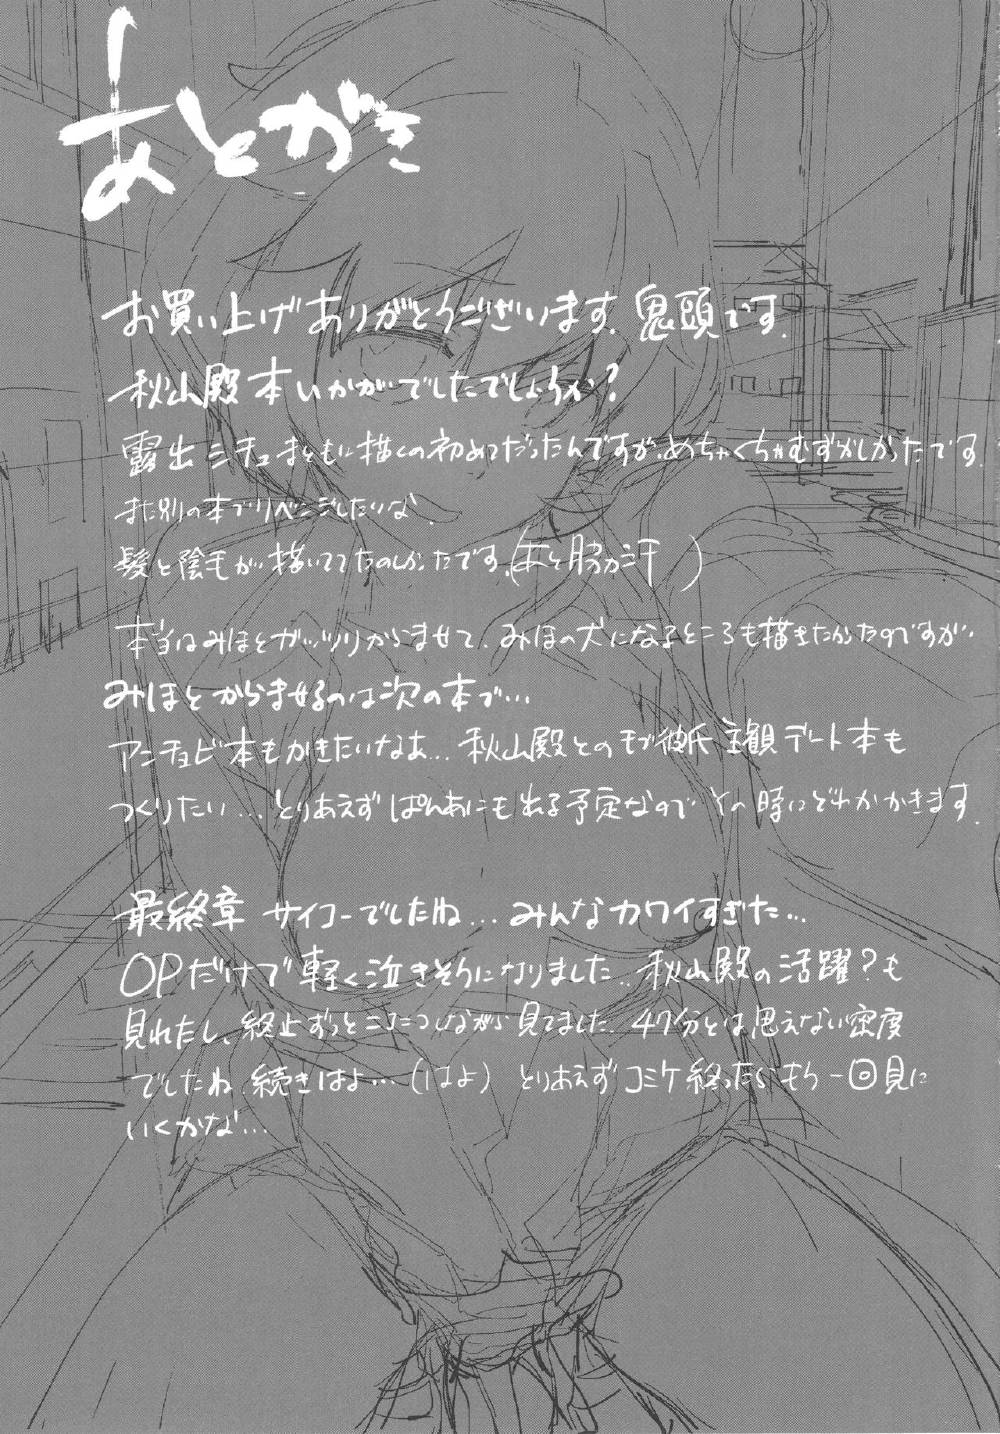 あとがき
お買い上げありがとうございます。鬼頭です。
秋山殿本いかがでしたでしょうか?
露出シチュまともに描くの初めてだったんですが、めちゃくちゃむずかしかったです。
また別の本でリベンジしたいな。
髪と陰毛が描いててたのしかったです。(あと脇か汗 )
本当はみほとガッツリからませて、みほの犬になるところも描きたかったのですが、
みほとからませるのは次の本で…
アンチョビ本もかきたいなぁ…秋山殿とのモブ彼氏主観デート本も
つくりたい…とりあえずぱんあにも出る予定なのでその時にどれかかきます。
最終章 サイコーでしたね…みんなカワイすぎた…
OPだけで軽く泣きそうになりました。秋山殿の活躍?も
見れたし、終止ずっとニコニコしながら見てました。47分とは思えない密度
でしたね。続きはよ…(はよ) とりあえずコミケ終ったらもう一回見に
いくかな…